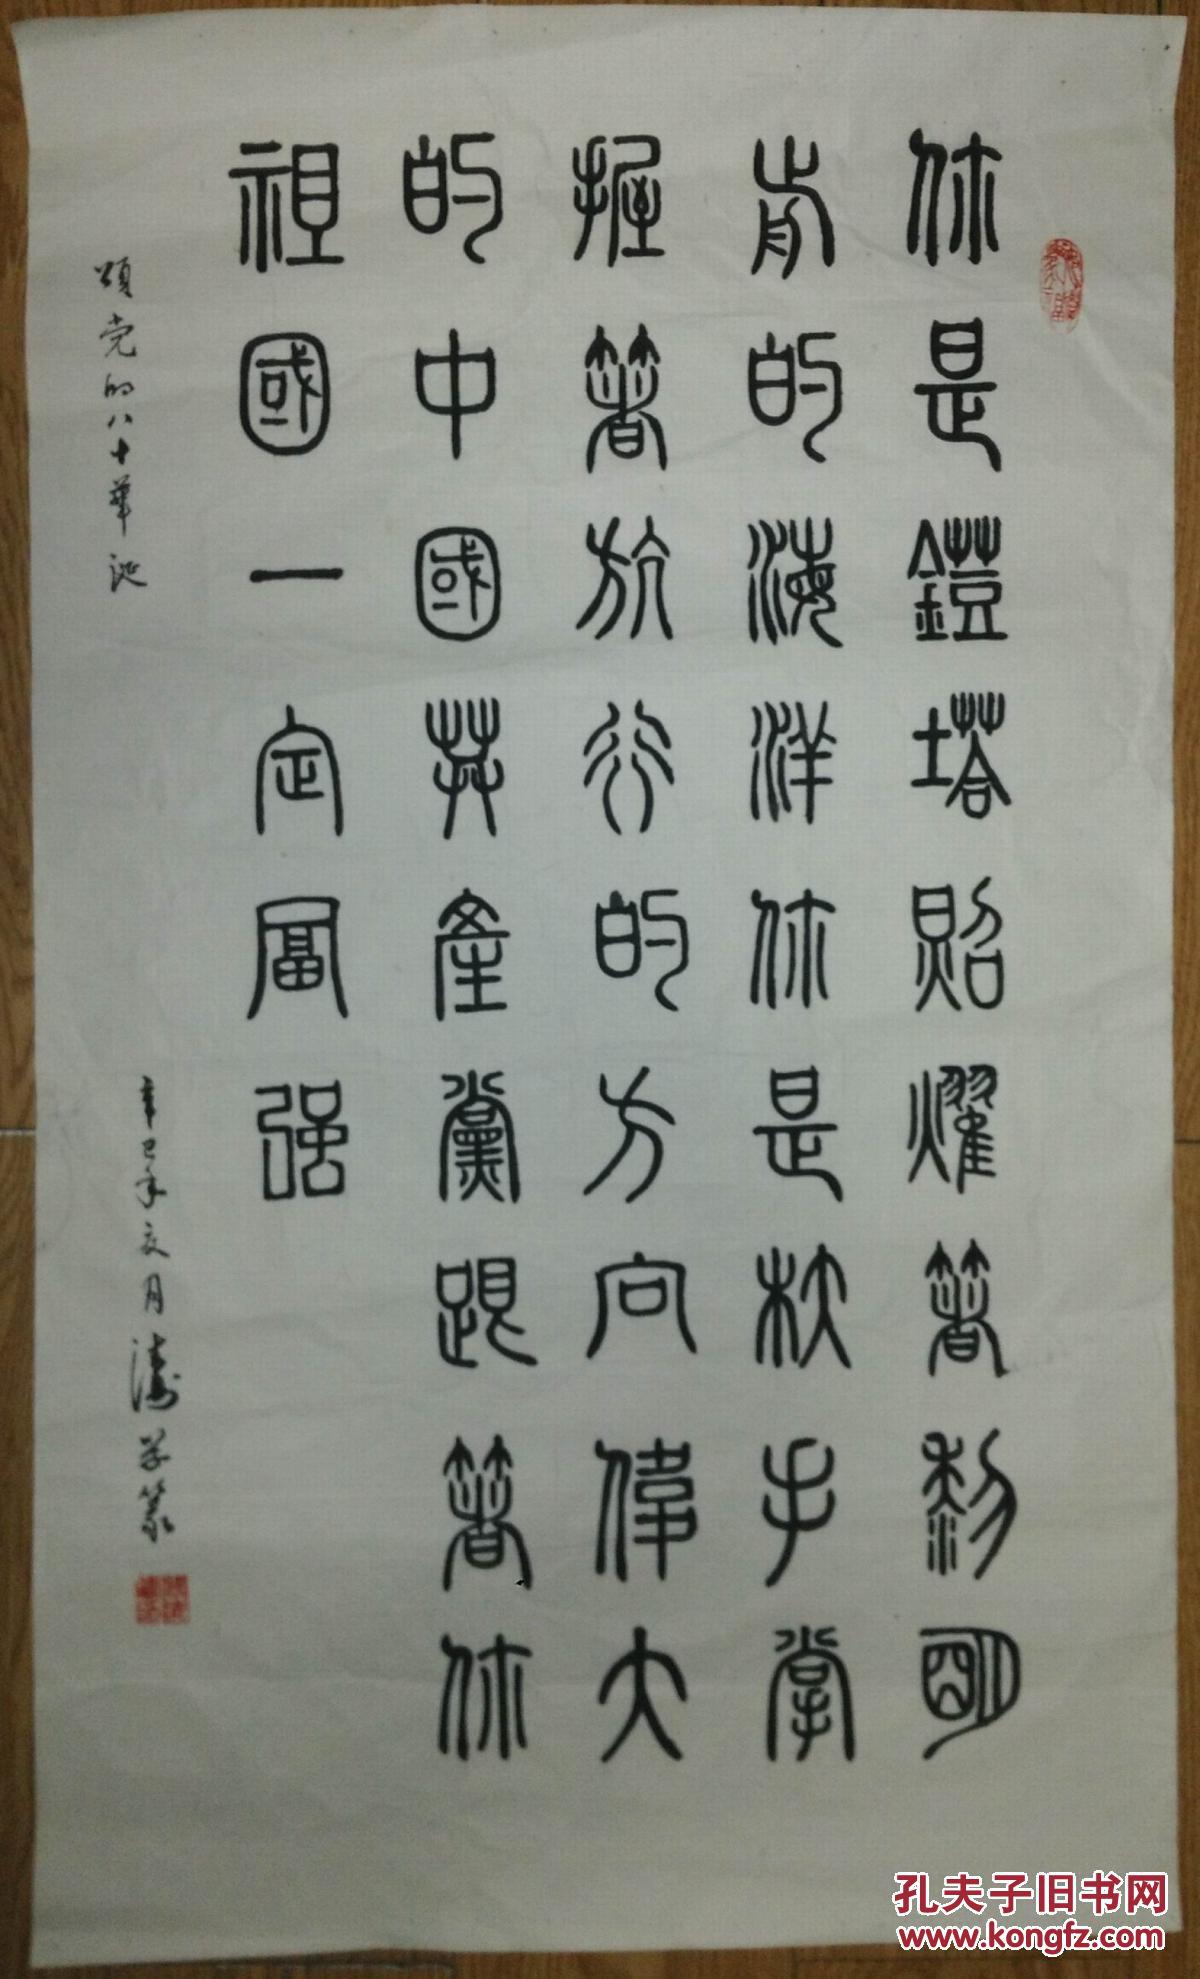 你是鐙塔照耀著黎明
前的海洋你是舵手掌
握著航行的方向偉大
的中國共產黨跟著你
祖國一定富強
頌党的八十華诞
辛巳年夏月濤学篆
孔夫子旧书网
www.kongfz.com